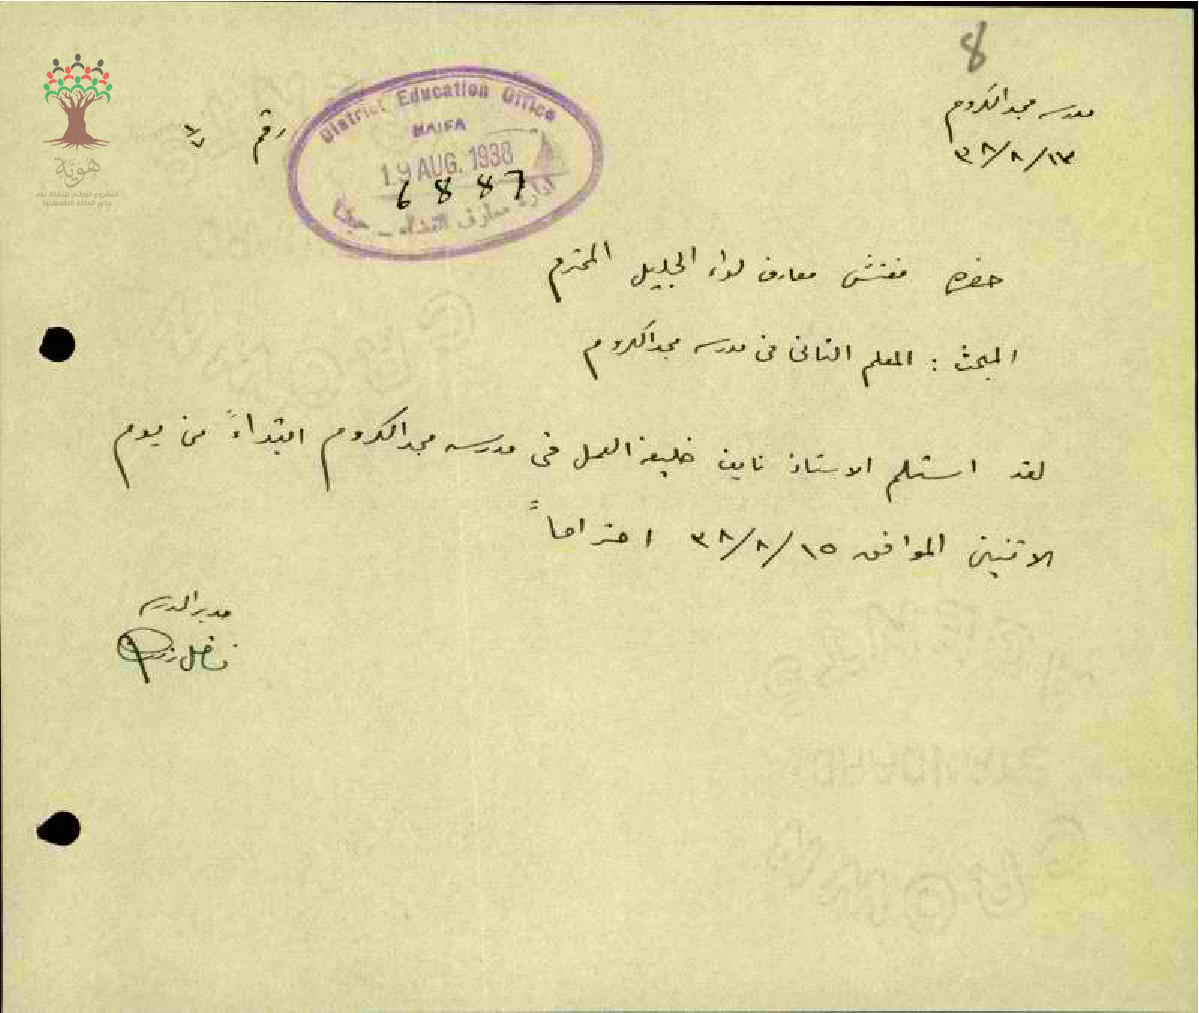 8
مدرسه مجد الكروم
٣٨/٨/١٣
رقم ٧/٨
District Education Office
HAIFA
19 AUG. 1938
6887
ادارة معارف القضاء – حيفا
هوية
المشروع الوطني للحفاظ على
جذور العائلة الفلسطينية
حضرة مفتش معارف لواء الجليل المحترم
المبحث : المعلم الثاني في مدرسه مجد الكروم
لقد استلم الاستاذ نايف خليفة العمل في مدرسه مجد الكروم ابتداءً من يوم
الاثنين الموافق ٣٨/٨/١٥ احتراماً
مدير المدرسه
فاضل